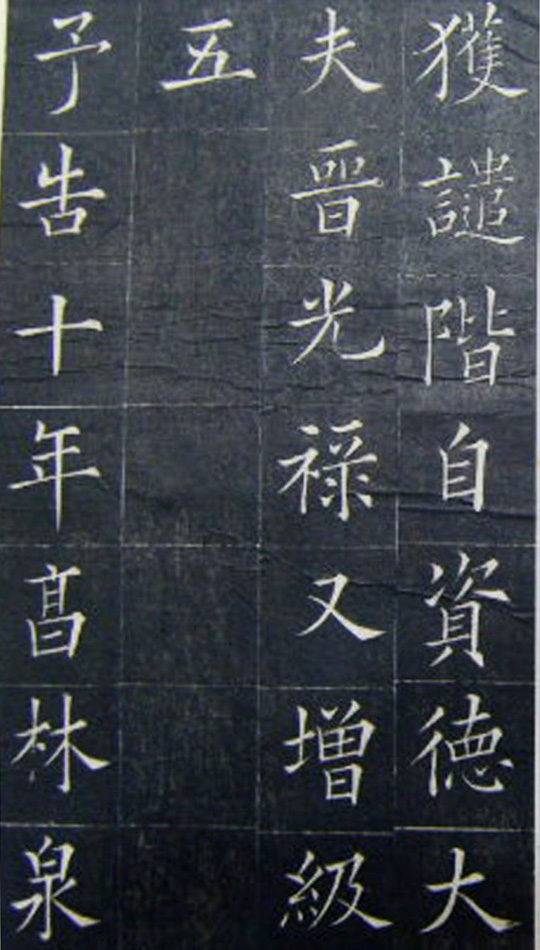 獲譴階自資德大
夫晋光禄又增級
五
予告十年髙林泉